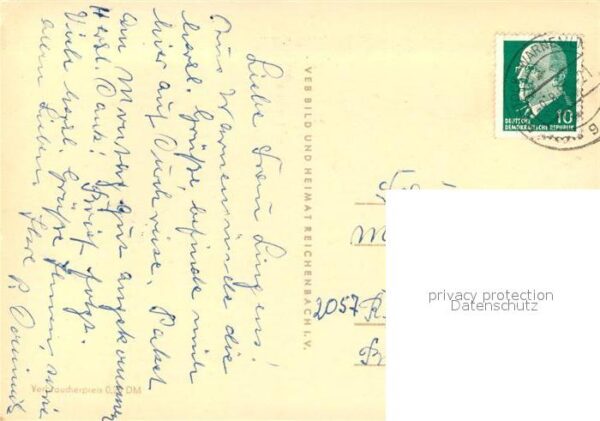 Liebe Frau Lugens!
Aus Warnemünde die
herzl. Grüße befinde mich
hier auf Durchreise. Paket
am Montag gut angekommen
Herzl. Dank! Brief folgt.
Viele herzl. Grüße Ihnen, sowie
allen Lieben, Ihre
P.
VEB BILD UND HEIMAT REICHENBACH I. V.
Verbraucherpreis 0,20 DM
WARNEMÜ
10
DEUTSCHE
DEMOKRATISCHE REPUBLIK
2057
privacy protection
Datenschutz